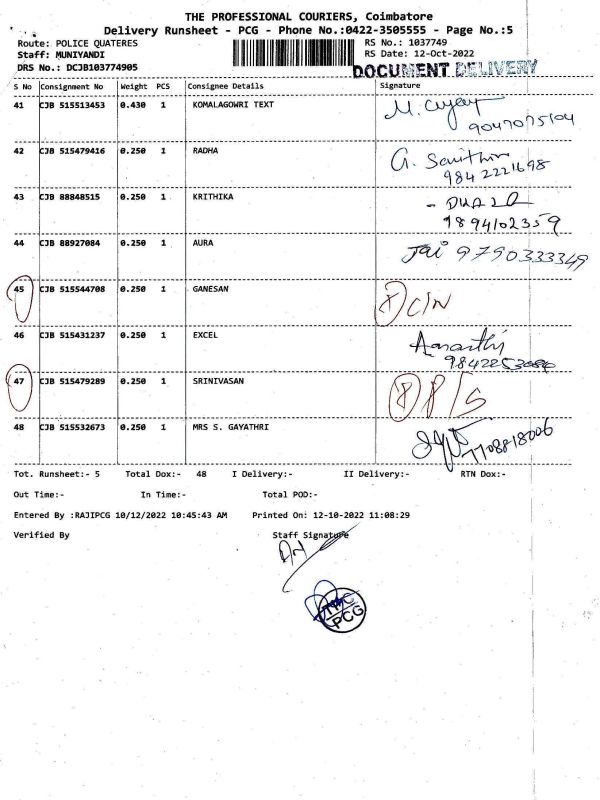 THE PROFESSIONAL COURIERS, Coimbatore
Delivery Runsheet - PCG - Phone No.:0422-3505555 - Page No.:5
Route: POLICE QUATERES RS No.: 1037749
Staff: MUNIYANDI RS Date: 12-Oct-2022
DRS No.: DCJB103774905 DOCUMENT DELIVERY
S No Consignment No Weight PCS Consignee Details Signature
41 CJB 515513453 0.430 1 KOMALAGOWRI TEXT M.
9047075104
42 CJB 515479416 0.250 1 RADHA G.
9842221698
43 CJB 88848515 0.250 1 KRITHIKA
9894102359
44 CJB 88927084 0.250 1 AURA Jai 9790333349
45 CJB 515544708 0.250 1 GANESAN C/N
46 CJB 515431237 0.250 1 EXCEL
47 CJB 515479289 0.250 1 SRINIVASAN P/S
48 CJB 515532673 0.250 1 MRS S. GAYATHRI
7708818006
Tot. Runsheet:- 5 Total Dox:- 48 I Delivery:- II Delivery:- RTN Dox:-
Out Time:- In Time:- Total POD:-
Entered By :RAJIPCG 10/12/2022 10:45:43 AM Printed On: 12-10-2022 11:08:29
Verified By Staff Signature
TPC
PCG